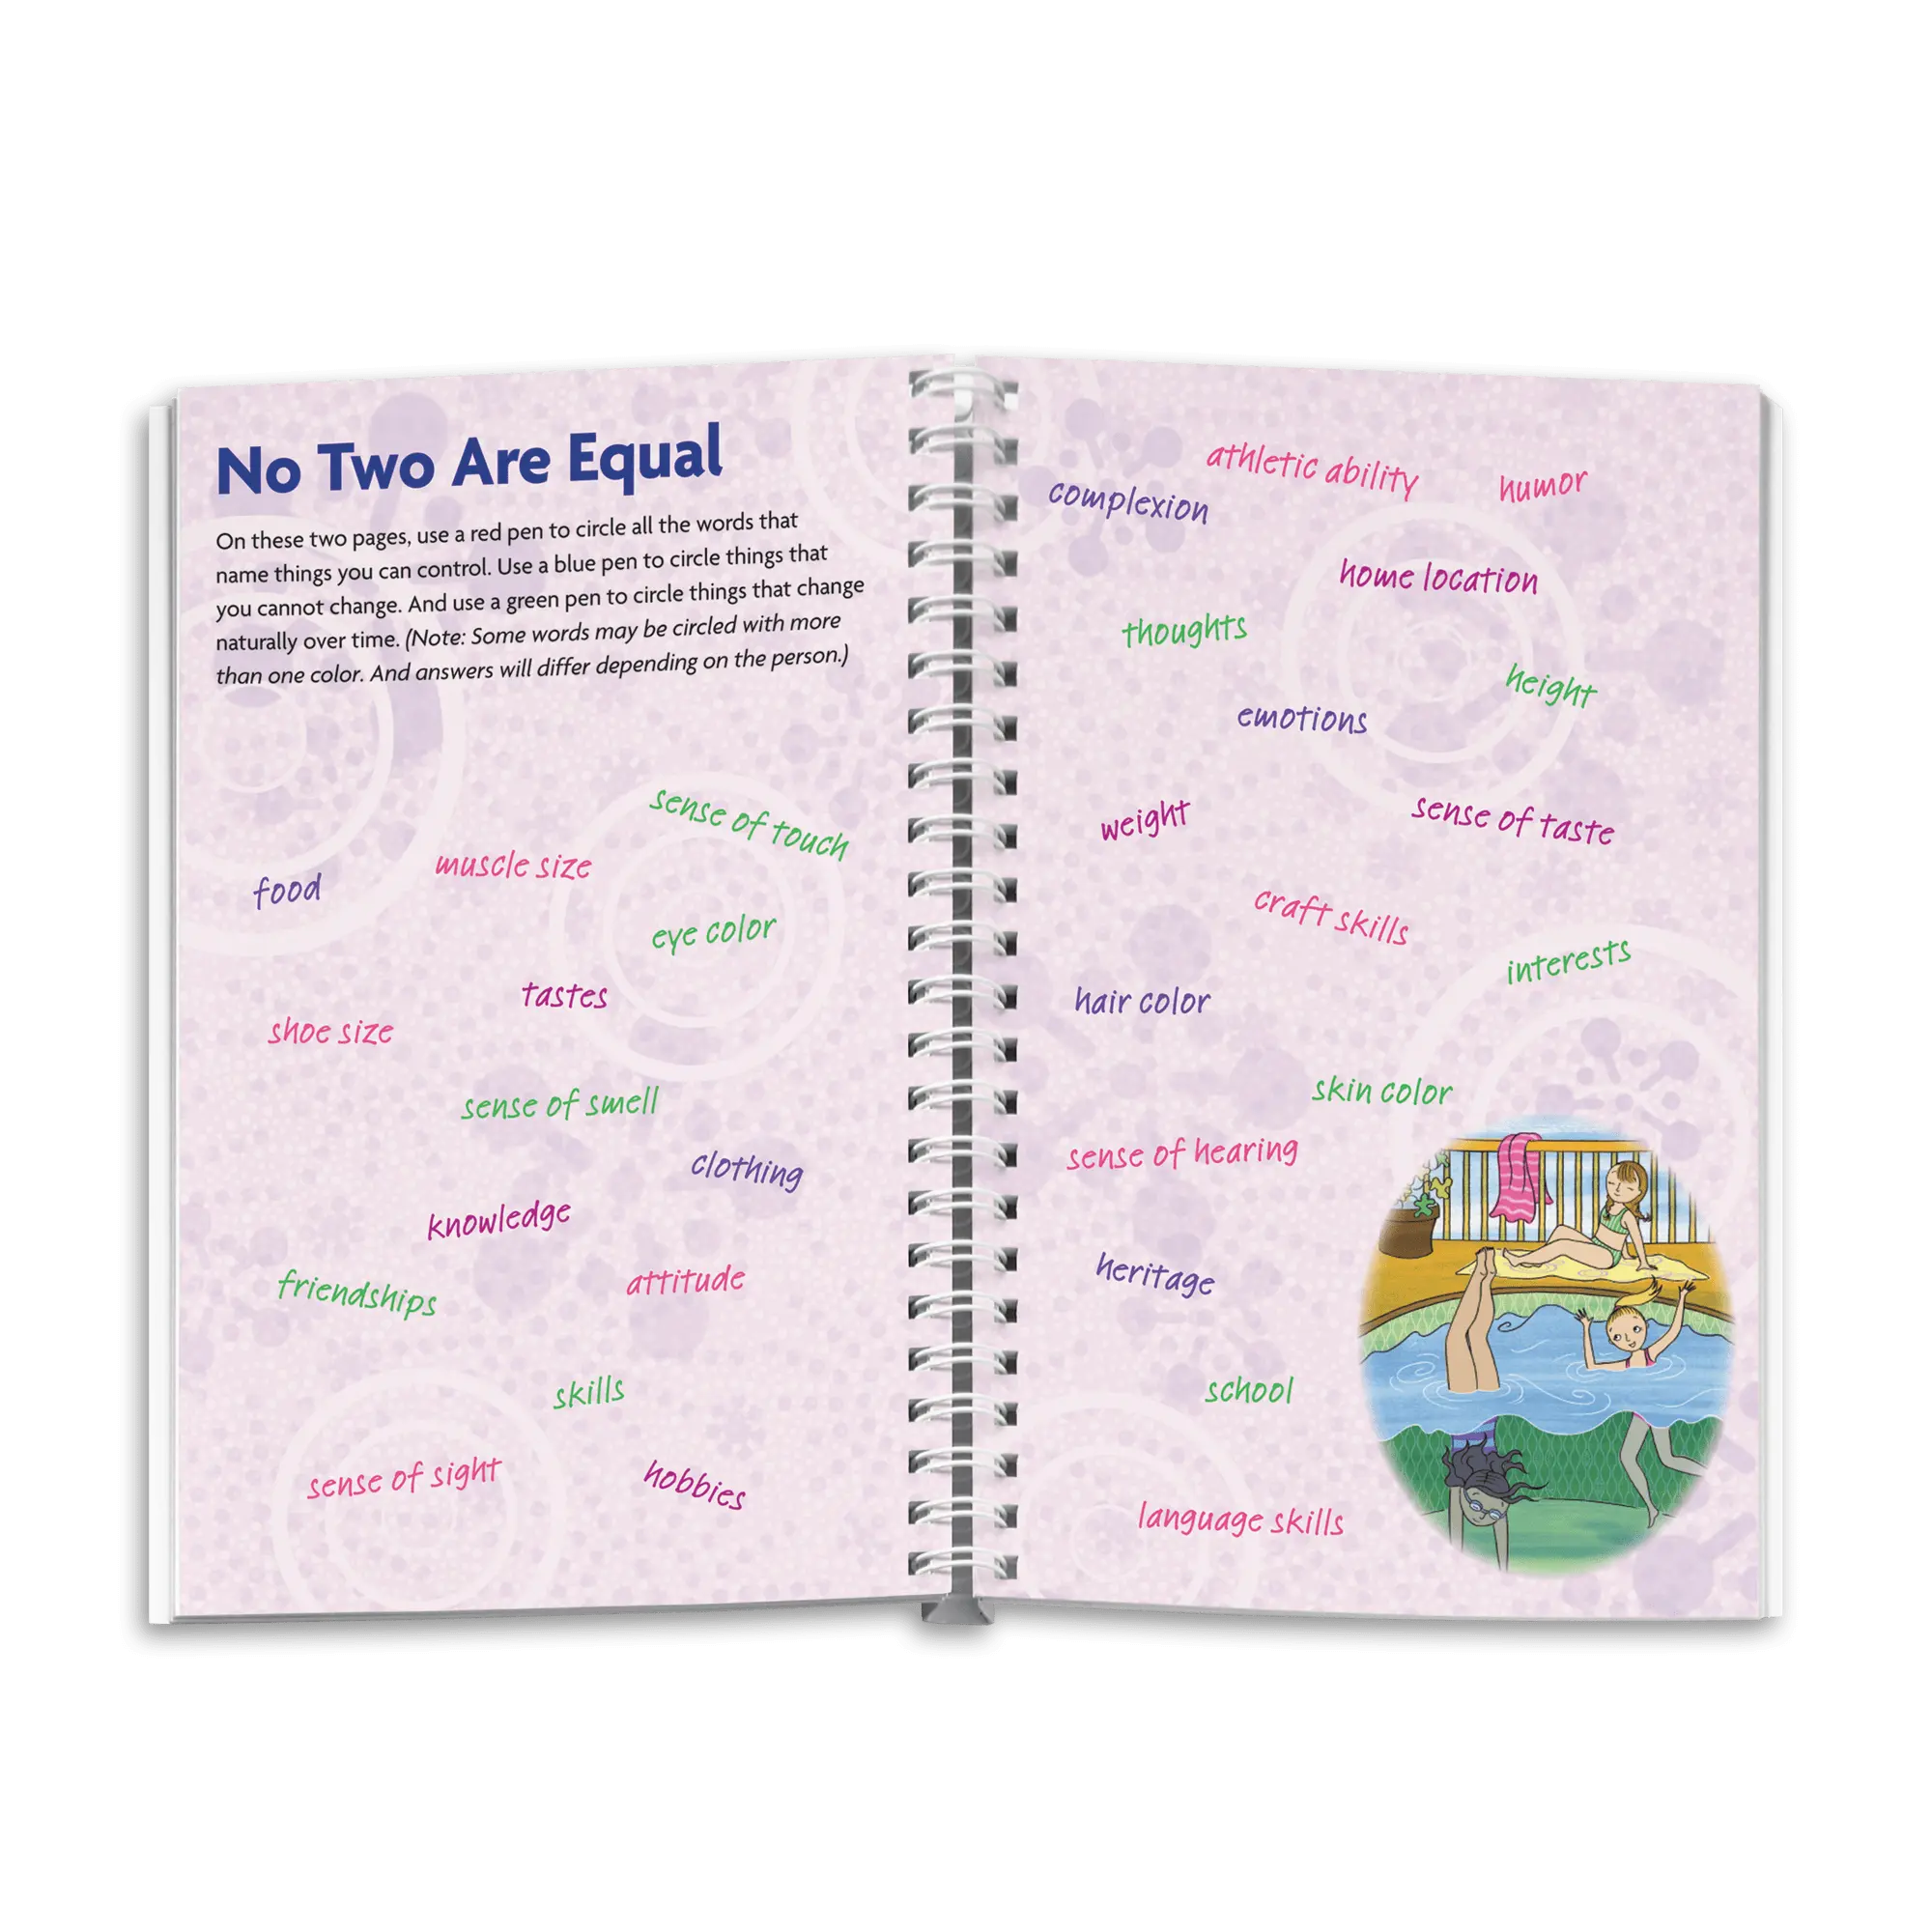 No Two Are Equal
On these two pages, use a red pen to circle all the words that
name things you can control. Use a blue pen to circle things that
you cannot change. And use a green pen to circle things that change
naturally over time. (Note: Some words may be circled with more
than one color. And answers will differ depending on the person.)
sense of touch
muscle size
food
eye color
tastes
shoe size
sense of smell
clothing
knowledge
friendships
attitude
skills
sense of sight
hobbies
athletic ability
humor
complexion
home location
thoughts
height
emotions
weight
sense of taste
craft skills
interests
hair color
skin color
sense of hearing
heritage
school
language skills